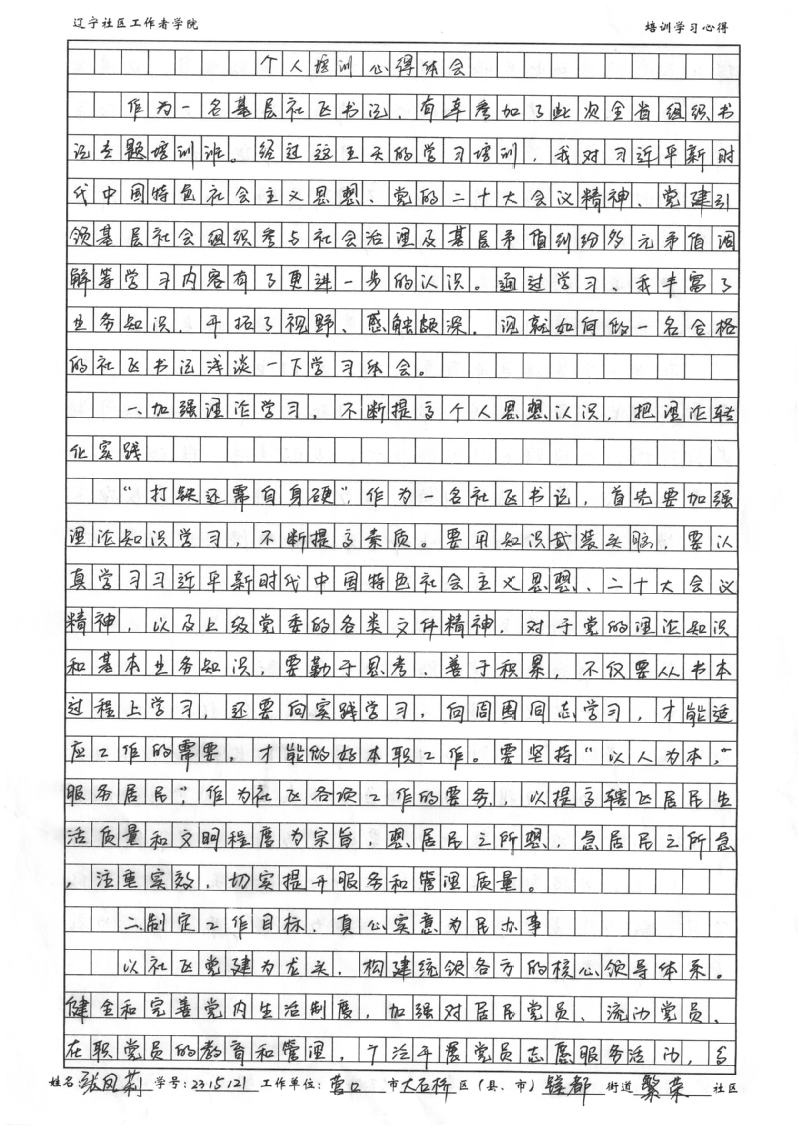 辽宁社区工作者学院 培训学习心得
个人培训心得体会
作为一名基层社区书记，有幸参加了此次全省组织书
记专题培训班。经过这五天的学习培训，我对习近平新时
代中国特色社会主义思想、党的二十大会议精神、党建引
领基层社会组织参与社会治理及基层矛盾纠纷多元矛盾调
解等学习内容有了更进一步的认识。通过学习、我丰富了
业务知识，开拓了视野、感触颇深，现就如何做一名合格
的社区书记浅谈一下学习体会。
一、加强理论学习，不断提高个人思想认识，把理论转
化实践
“打铁还需自身硬”，作为一名社区书记，首先要加强
理论知识学习，不断提高素质。要用知识武装头脑，要认
真学习习近平新时代中国特色社会主义思想、二十大会议
精神，以及上级党委的各类文件精神，对于党的理论知识
和基本业务知识，要勤于思考、善于积累，不仅要从书本
过程上学习，还要向实践学习，向周围同志学习，才能适
应工作的需要，才能做好本职工作。要坚持“以人为本，
服务居民”，作为社区各项工作的要务，以提高辖区居民生
活质量和文明程度为宗旨，想居民之所想，急居民之所急
，注重实效，切实提升服务和管理质量。
二、制定工作目标，真心实意为民办事
以社区党建为龙头，构建统领各方的核心领导体系。
健全和完善党内生活制度，加强对居民党员、流动党员、
在职党员的教育和管理，广泛开展党员志愿服务活动，
姓名 张凤莉 学号：2315121 工作单位：营口 市 大石桥 区（县、市） 镁都 街道 繁荣 社区